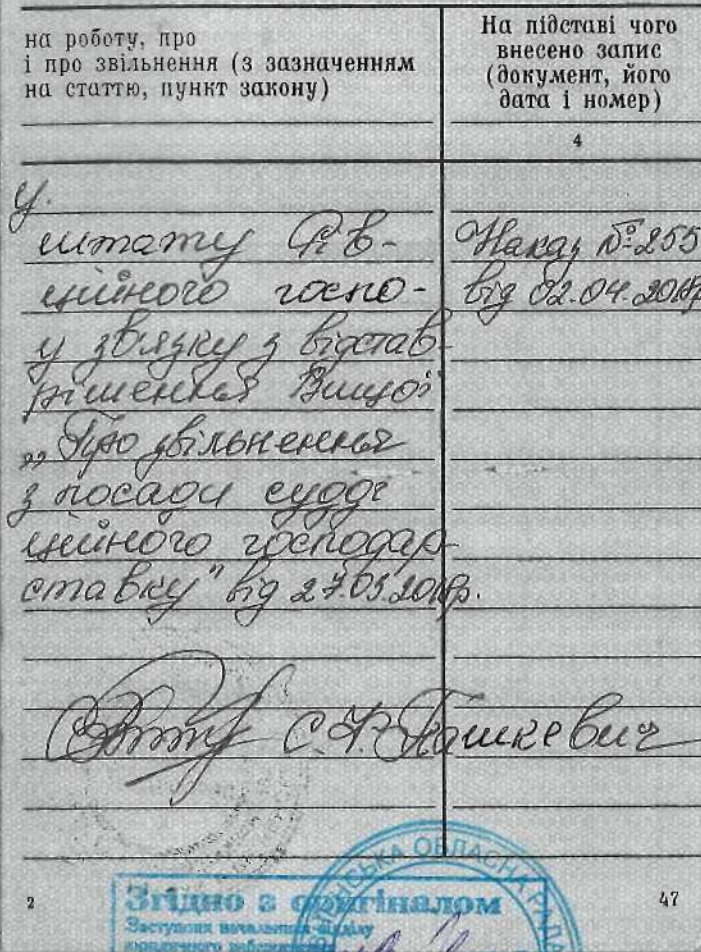 на роботу, про
і про звільнення (з зазначенням
на статтю, пункт закону)
На підставі чого
внесено запис
(документ, його
дата і номер)
4
у.
штату Рів-
ційного госпо-
у звязку з відстав
рішення Вищої
„Про звільнення
з посади судді
ційного господар-
ставку" від 27.03.2018р.
Наказ №255
від 02.04.2018р
С. Пашкевич
2
47
Згідно з оригіналом
Заступник начальника відділу
ОБЛАСНА РАДА